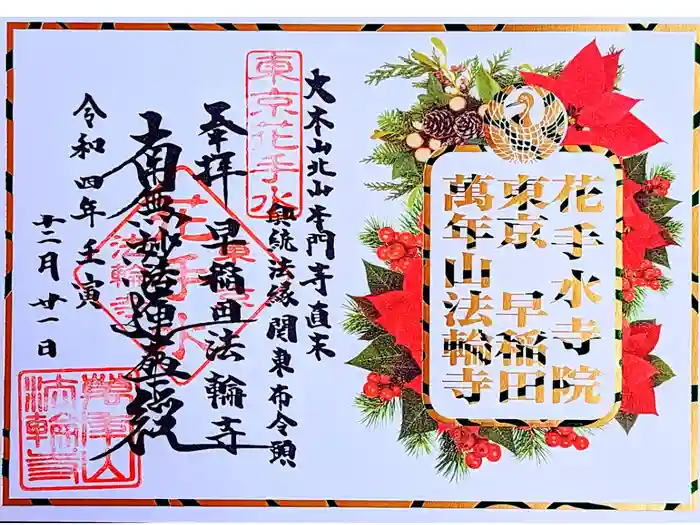 花手水寺院
東京 早稲田
萬年山法輪寺
大本山北山本門寺直末
東京花手水
興統法縁関東布令頭
奉拝 早稲田法輪寺
花手水
東京
法輪寺
南無妙法蓮華経
令和四年壬寅
十二月廿一日
萬年山
法輪寺